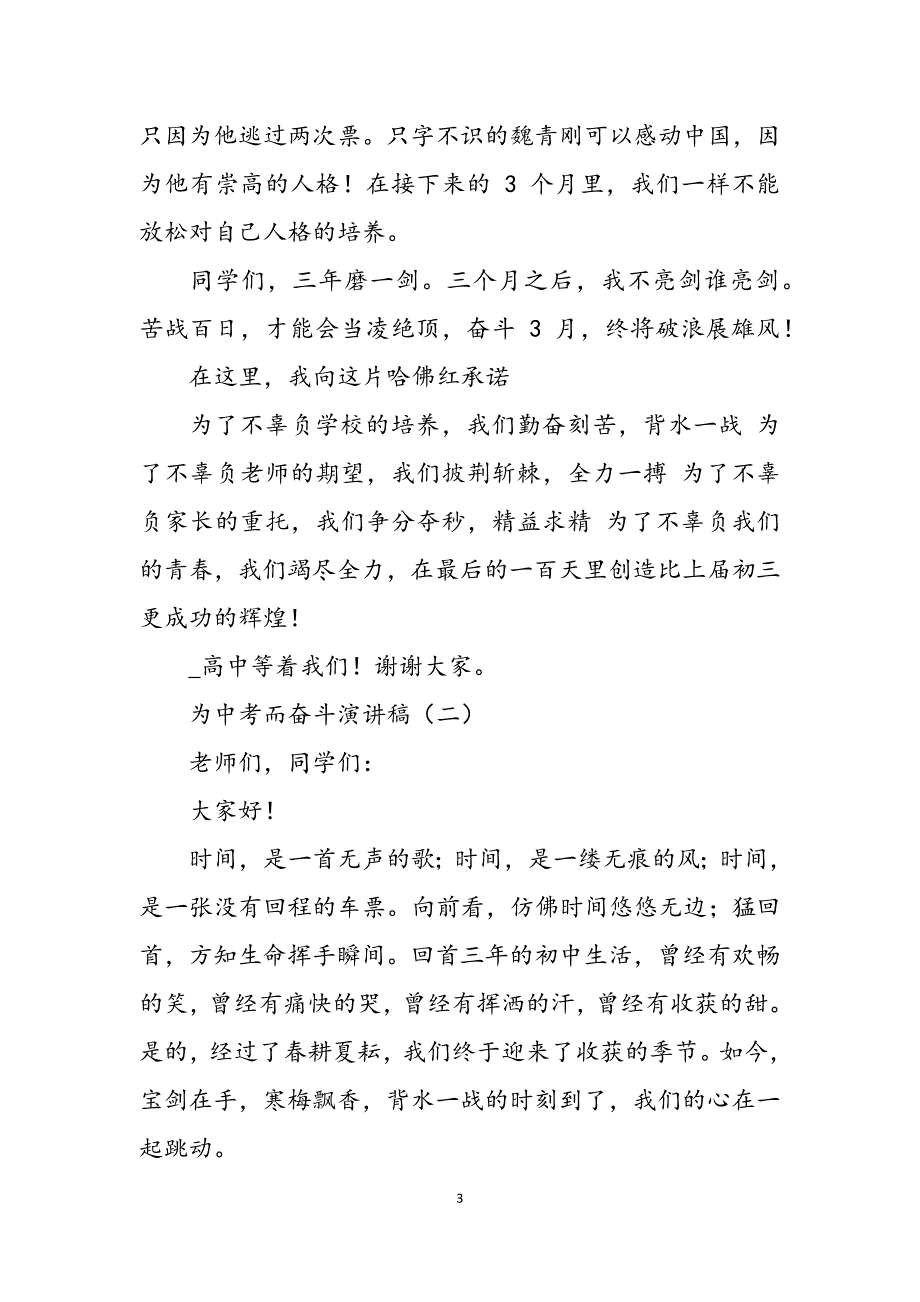 只因为他逃过两次票。只字不识的魏青刚可以感动中国，因
为他有崇高的人格！在接下来的 3 个月里，我们一样不能
放松对自己人格的培养。
同学们，三年磨一剑。三个月之后，我不亮剑谁亮剑。
苦战百日，才能会当凌绝顶，奋斗 3 月，终将破浪展雄风！
在这里，我向这片哈佛红承诺
为了不辜负学校的培养，我们勤奋刻苦，背水一战 为
了不辜负老师的期望，我们披荆斩棘，全力一搏 为了不辜
负家长的重托，我们争分夺秒，精益求精 为了不辜负我们
的青春，我们竭尽全力，在最后的一百天里创造比上届初三
更成功的辉煌！
_高中等着我们！谢谢大家。
为中考而奋斗演讲稿（二）
老师们，同学们：
大家好！
时间，是一首无声的歌；时间，是一缕无痕的风；时间，
是一张没有回程的车票。向前看，仿佛时间悠悠无边；猛回
首，方知生命挥手瞬间。回首三年的初中生活，曾经有欢畅
的笑，曾经有痛快的哭，曾经有挥洒的汗，曾经有收获的甜。
是的，经过了春耕夏耘，我们终于迎来了收获的季节。如今，
宝剑在手，寒梅飘香，背水一战的时刻到了，我们的心在一
起跳动。
3